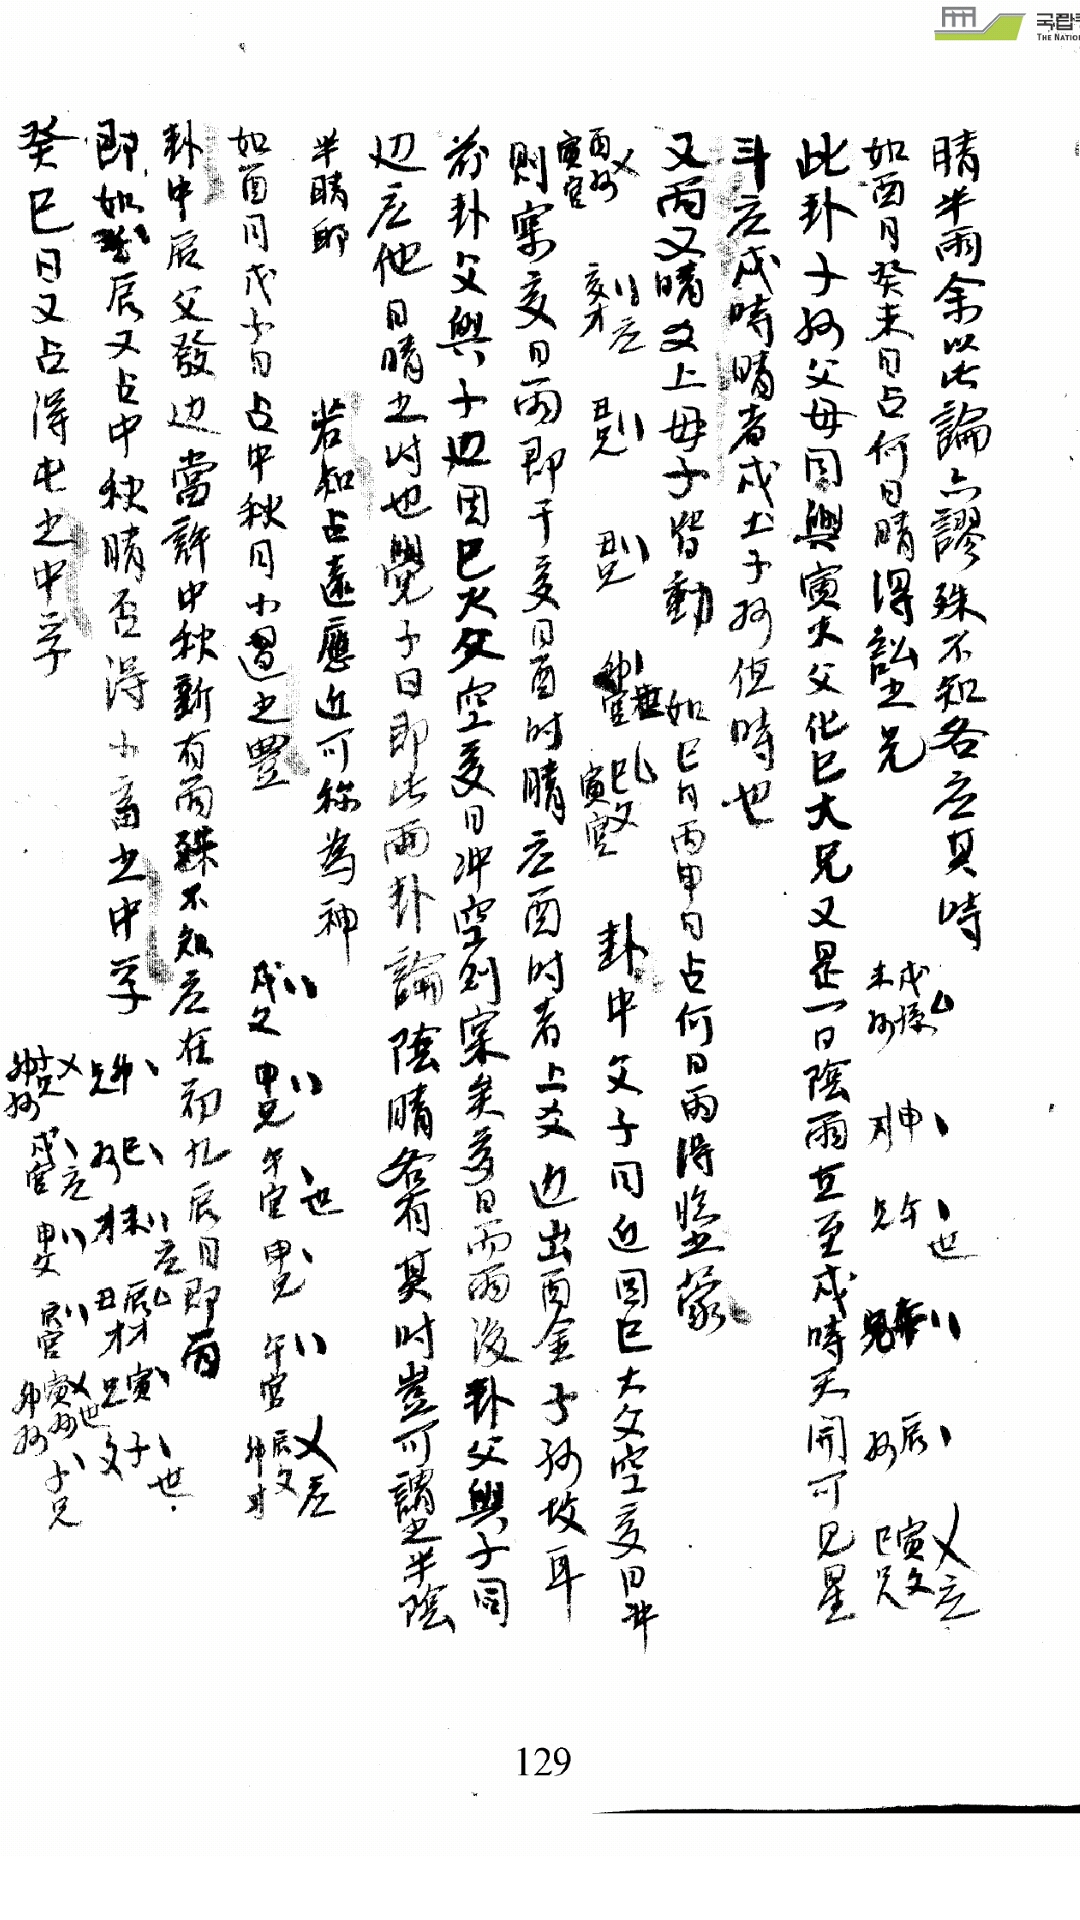 국립중
THE NATION
晴半雨余以此論六謬殊不知各应其時
如酉月癸未日占何日晴得訟之兄
戌孫 未孙 申才 午兄 世 辰孙 寅父 巳兄 应
此卦子孙父母同興寅木父化巳火兄又是一日陰雨直至戌時天開可見星
斗应戌時晴者戌土子孙值時也
又雨又晴爻上母子皆動
如巳月丙申日占何日雨得臨之蒙
酉孙 寅官 亥才 应 丑兄 丑兄 卯官 世 巳父 寅官
卦中父子同近因巳火父空亥日冲
則宲亥日雨即于亥日酉时晴应酉时者上爻近出酉金子孙故耳
前卦父興子边因巳火父空亥日冲空則宲矣亥日而雨後卦父興子同
边应他日晴之时也覺子日即此両卦論陰晴各有其时豈可謂之半陰
半晴耶
若知占遠應近可称為神
如酉月戊寅日占中秋月小過之豐
戌父 申兄 午官 世 申兄 午官 辰父 卯才 应
卦中辰父發边當許中秋新有雨殊不知应在初九辰日即雨
即如 辰又占中秋晴否得小畜之中孚
卯兄 巳孙 未才 应 辰才 丑才 寅兄 子父 世
癸巳日又占得屯之中孚
子兄 卯孙 戌官 应 申父 辰官 寅孙 世 卯孙 子兄
129